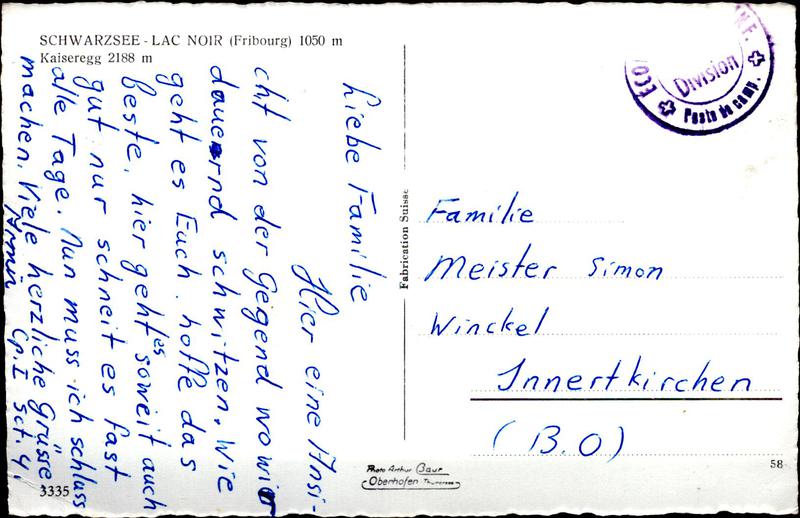 SCHWARZSEE - LAC NOIR (Fribourg) 1050 m
Kaiseregg 2188 m
Liebe Familie
Hier eine Ansi-
cht von der Gegend wo wir
dauernd schwitzen. Wie
geht es Euch. hoffe das
beste, hier geht es soweit auch
gut nur schneit es fast
alle Tage. Nun muss ich schluss
machen. Viele herzliche Grüsse
Armin Cp. I Sct. 4.
3335
Fabrication Suisse
Division
1033
Poste de camp.
Familie
Meister Simon
Winckel
Innertkirchen
(B.O)
Photo Arthur Baur
Oberhofen Thunersee
58